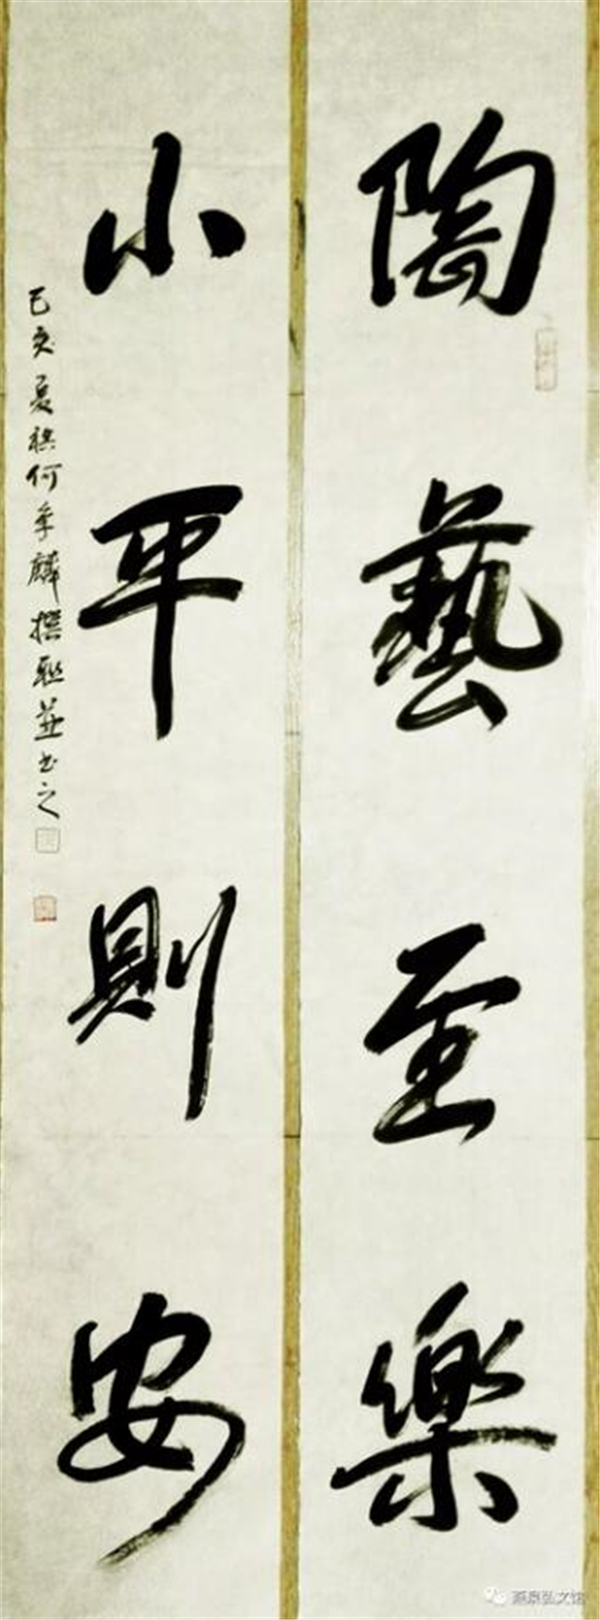 陶藝至樂
小平則安
己亥夏猿何季麟撰聯並书之
燕泉弘文馆